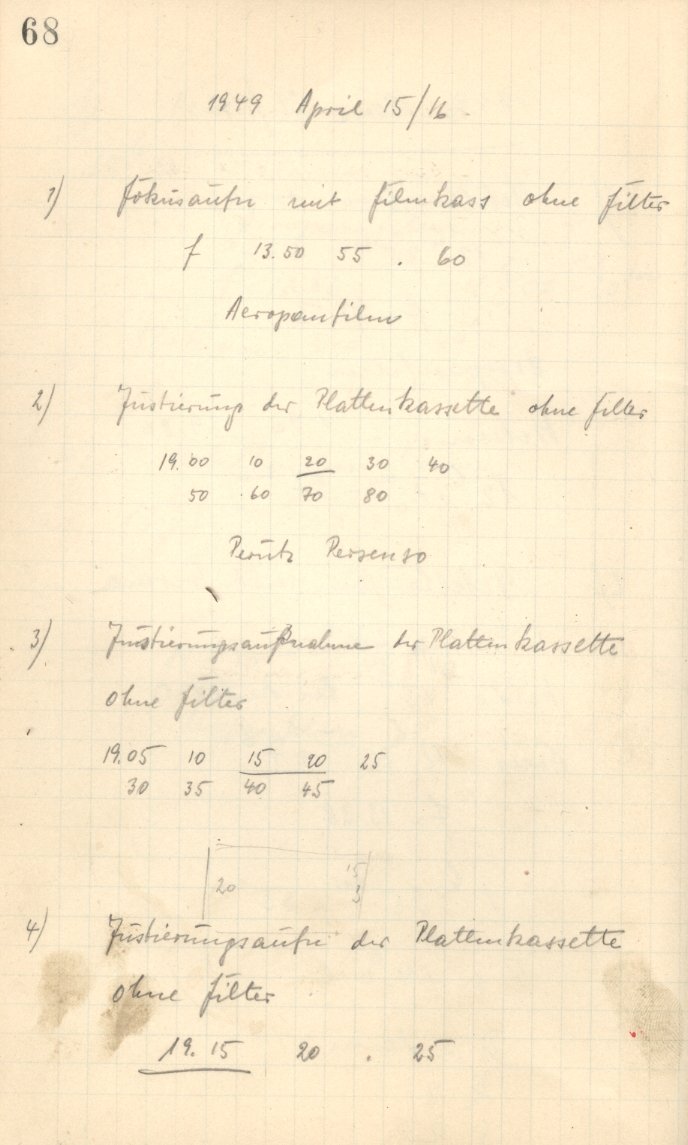 68
1949 April 15/16
1) Fokusaufn mit Filmkass ohne Filter
f 13.50 55 . 60
Aeropanfilm
2) Justierung der Plattenkassette ohne Filter
19.00 10 20 30 40
50 60 70 80
Perutz Persenso
3) Justierungsaufnahme der Plattenkassette
ohne Filter
19.05 10 15 20 25
30 35 40 45
20 15
3
4) Justierungsaufn der Plattenkassette
ohne Filter
19.15 20 . 25